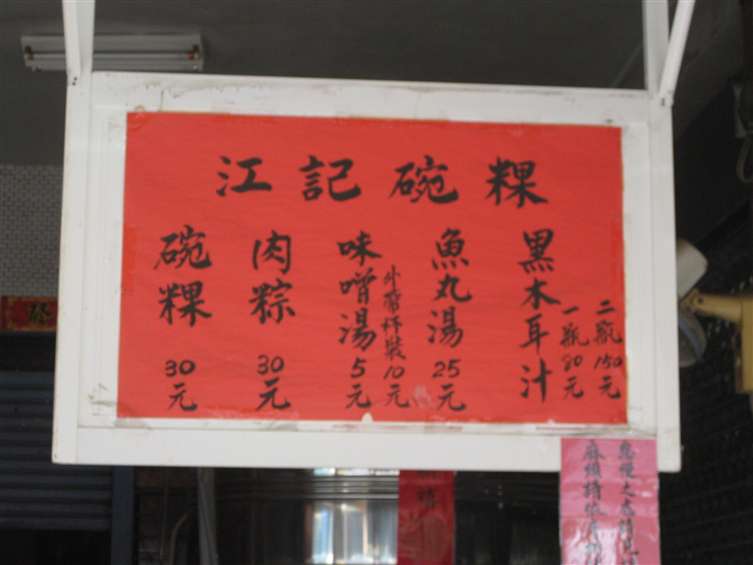 江記碗粿
碗粿 30元
肉粽 30元
味噌湯 5元
外帶杯裝 10元
魚丸湯 25元
黑木耳汁
一瓶 80元
二瓶 150元